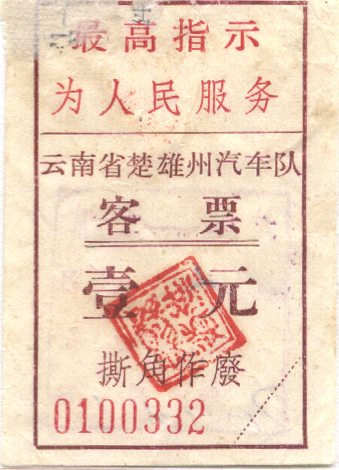 最高指示
为人民服务
云南省楚雄州汽车队
客票
壹元
撕角作廢
0100332